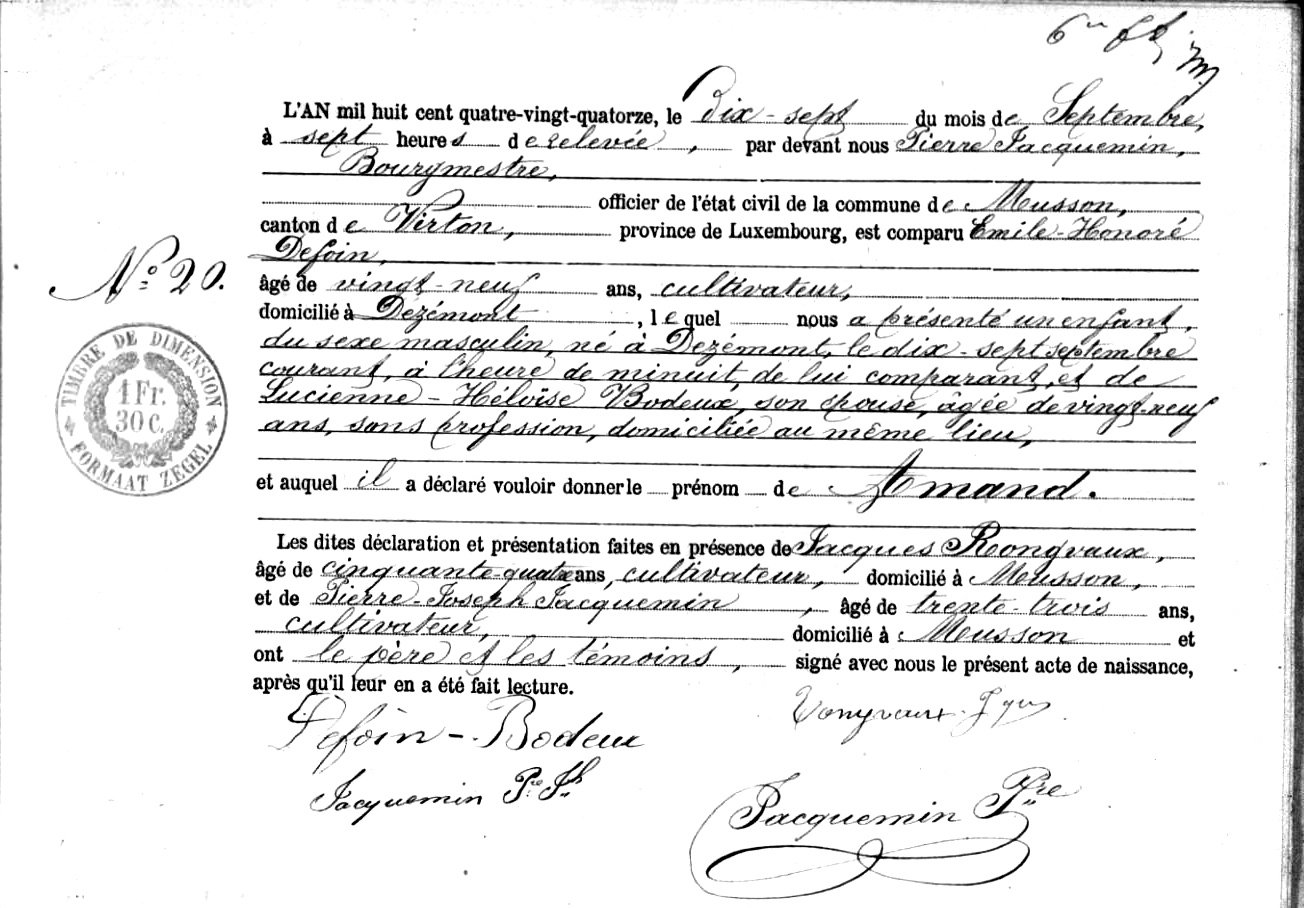 L'AN mil huit cent quatre-vingt-quatorze, le Dix-sept du mois de Septembre,
à sept heures de relevée, par devant nous Pierre Jacquemin,
Bourgmestre,
officier de l'état civil de la commune de Musson,
canton de Virton, province de Luxembourg, est comparu Emile-Honoré
Defoin,
N° 20.
âgé de vingt-neuf ans, cultivateur,
domicilié à Dézémont, lequel nous a présenté un enfant,
du sexe masculin, né à Dezémont, le dix-sept septembre
courant, à l'heure de minuit, de lui comparant, et de
Lucienne-Héloïse Bodeux, son épouse, âgée de vingt-neuf
ans, sans profession, domiciliée au même lieu,
TIMBRE DE DIMENSION
1 Fr.
30 C.
FORMAAT ZEGEL
et auquel il a déclaré vouloir donner le prénom de Amand.
Les dites déclaration et présentation faites en présence de Jacques Rongvaux,
âgé de cinquante-quatre ans, cultivateur, domicilié à Musson,
et de Pierre-Joseph Jacquemin, âgé de trente-trois ans,
cultivateur, domicilié à Musson et
ont le père et les témoins, signé avec nous le présent acte de naissance,
après qu'il leur en a été fait lecture.
Defoin-Bodeux
Rongvaux Jques
Jacquemin Pre Jh
Jacquemin Pre